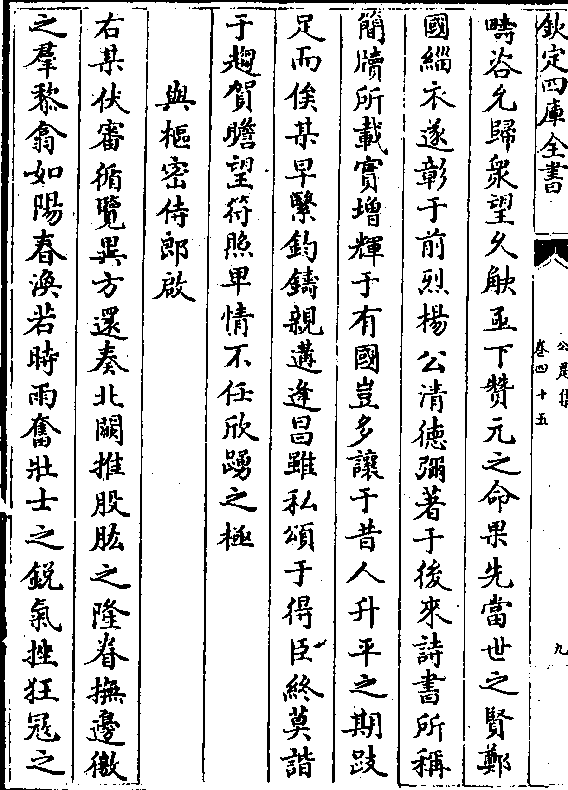 欽定四庫全書
公是集
卷四十五
九
疇咨允歸衆望久觖亟下贊元之命果先當世之賢鄭
國緇衣遂彰于前烈楊公清德彌著于後來詩書所稱
簡牘所載實增輝于有國豈多讓于昔人升平之期跂
足而俟某早繫鈞鑄親遘逢昌雖私頌于得臣終莫諧
于趨賀瞻望符照卑情不任欣踴之極
與樞密侍郎啟
右某伏審循覽異方還奏北闕推股肱之隆眷撫邊徼
之羣黎翕如陽春渙若時雨奮壯士之銳氣挫狂冦之